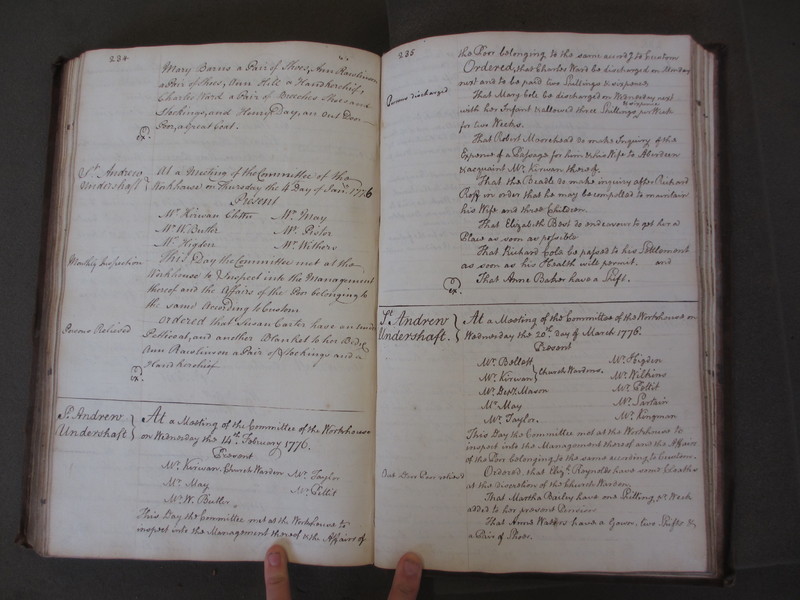 234
Mary Barns a Pair of Shoes, Ann Rawlinson
a Pair of Shoes, Ann Hill a Handkerchief,
Charles Ward a Pair of Breeches Shoes and
Stockings, and Henry Day, an out Door
Poor, a Great Coat.
Ex.
St. Andrew Undershaft } At a Meeting of the Committee of the
Workhouse on Thursday the 4 Day of Janry. 1776
Present
Mr. Kirwan Mr. May
Mr. W. Butler Mr. Pistor
Mr. Higden Mr. Withers
Monthly Inspection This Day the Committee met at the
Workhouse to Inspect into the Management
thereof and the Affairs of the Poor belonging to
the same According to Custom
Persons Relieved Ordered that Susan Carter have an under
Petticoat, and another Blanket to her Bed,
Ann Rawlinson a Pair of Stockings and a
Handkerchief
Ex.
St. Andrew Undershaft } At a Meeting of the Committee of the Workhouse
on Wednesday the 14th. February 1776.
Present
Mr. Kirwan, Church Warden Mr. Taylor
Mr. May Mr. Pettit
Mr. W. Butler
This Day the Committee met at the Workhouse to
inspect into the Management thereof & the Affairs of
235
the Poor belonging to the same accordg. to Custom
Ordered, that Charles Ward be discharged on Monday
Persons discharged next and to be paid two Shillings & sixpence
That Mary Cole be discharged on Wednesday next
with her Infant & allowed three Shillings & sixpence per Week
for two Weeks.
That Robert Morehead do make Inquiry of the
Expence of a Passage for him & his Wife to Aberdeen
& acquaint Mr. Kirwan thereof.
That the Beadle do make inquiry after Richard
in order that he may be compelled to maintain
his Wife and three Children.
That Elizabeth Best do endeavour to get her a
Place as soon as possible
That Richard Cole be passed to his Settlement
as soon as his Health will permit. and
That Anne Baker have a Shift.
Ex.
St. Andrew Undershaft. } At a Meeting of the Committee of the Workhouse on
Wednesday the 20th. day of March 1776.
Present
Mr. Kirwan } Church Wardens. Mr. Higden
Mr. Depy. Mason Mr. Wilkins
Mr. May Mr. Pettit
Mr. Taylor. Mr. Kingman
This Day the Committee met at the Workhouse to
inspect into the Management thereof and the Affairs
of the Poor belonging to the same according to Custom.
Out Door Poor relieved Ordered, that Elizth. Raynolds have some Cloaths
at the discretion of the Church Warden
That Martha Bailey have one Shilling, per Week
added to her present Pension
That Anne Walters have a Gown, two Shifts &
a Pair of Shoes.